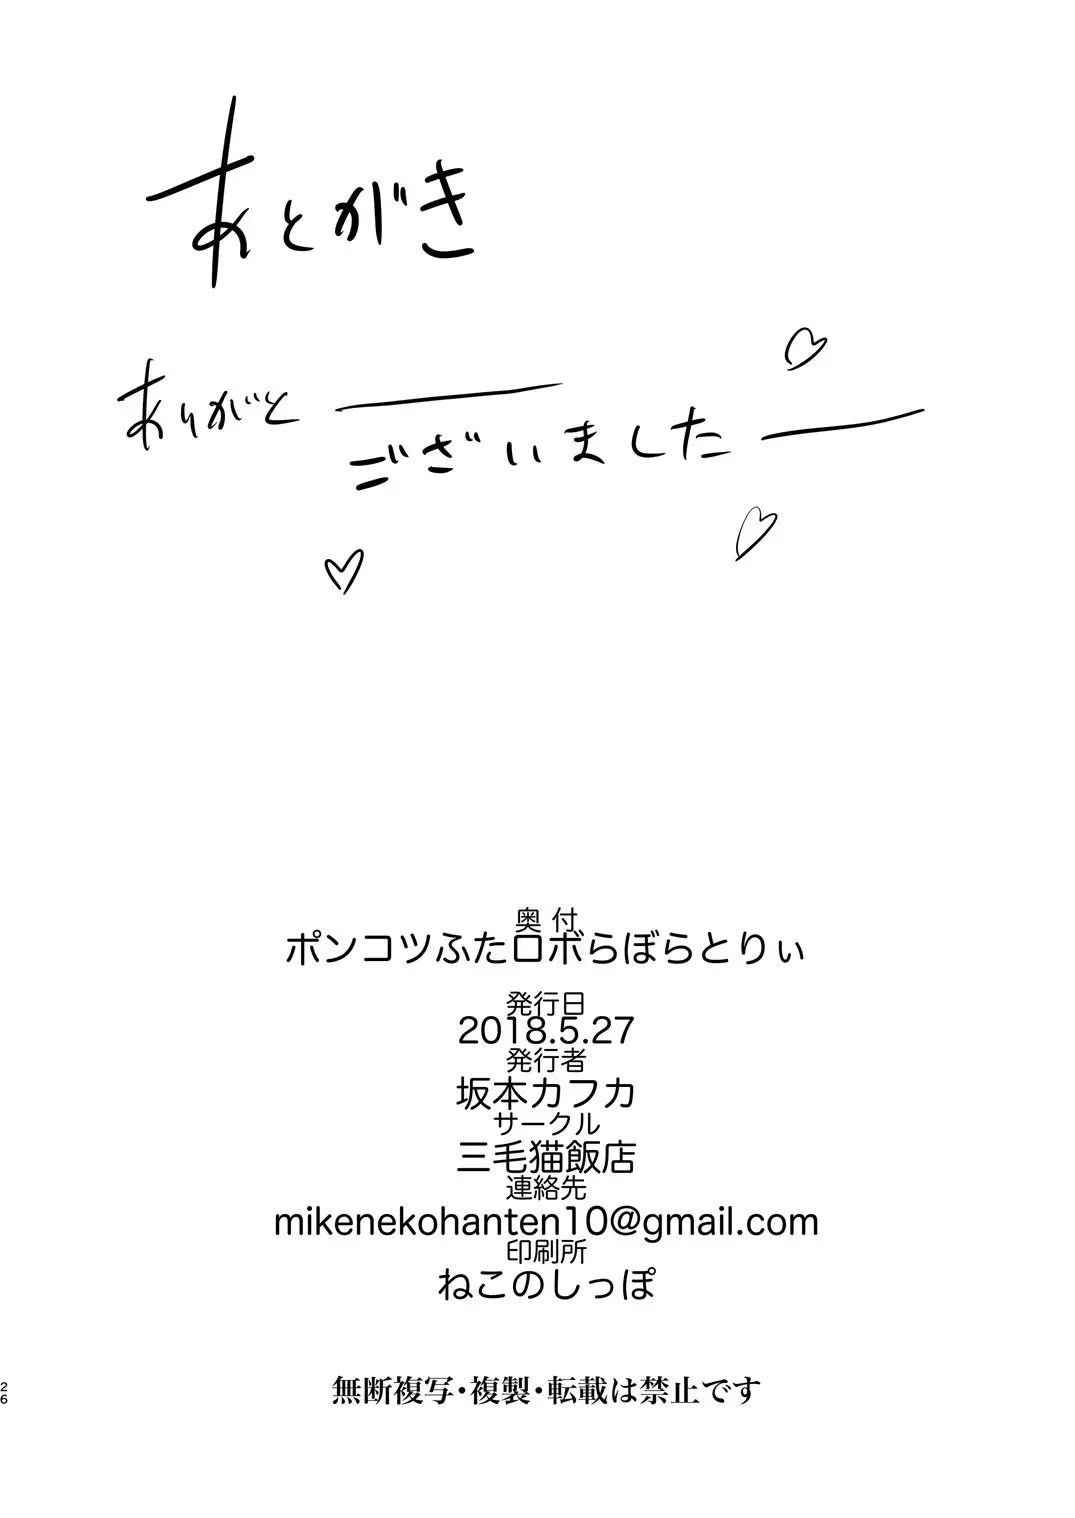 あとがき
ありがと――
ございました――
奥付
ポンコツふたロボらぼらとりぃ
発行日
2018.5.27
発行者
坂本カフカ
サークル
三毛猫飯店
連絡先
mikenekohanten10@gmail.com
印刷所
ねこのしっぽ
無断複写・複製・転載は禁止です
26